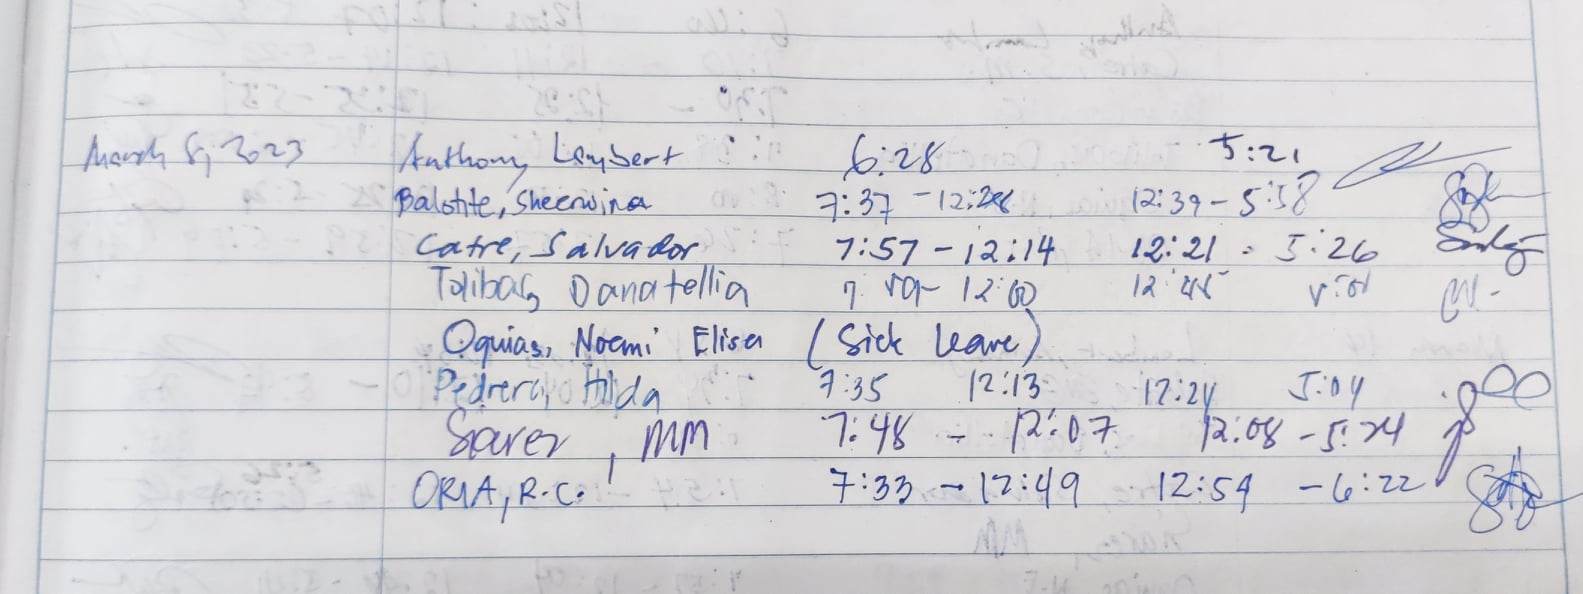 March 8, 2023 Anthony Lambert 6:28 5:21
Balotite, Sheerwina 7:37 - 12:28 12:39 - 5:58
Catre, Salvador 7:57 - 12:14 12:21 - 5:26
Tolibas, Danatellia 12:00 12:45
Oquias, Noemi Elisa (Sick leave)
Pedrera, Hilda 7:35 12:13 12:24 5:04
MM 7:48 - 12:07 12:08 - 5:24
ORIA, R.C. 7:33 - 12:49 12:54 - 6:22